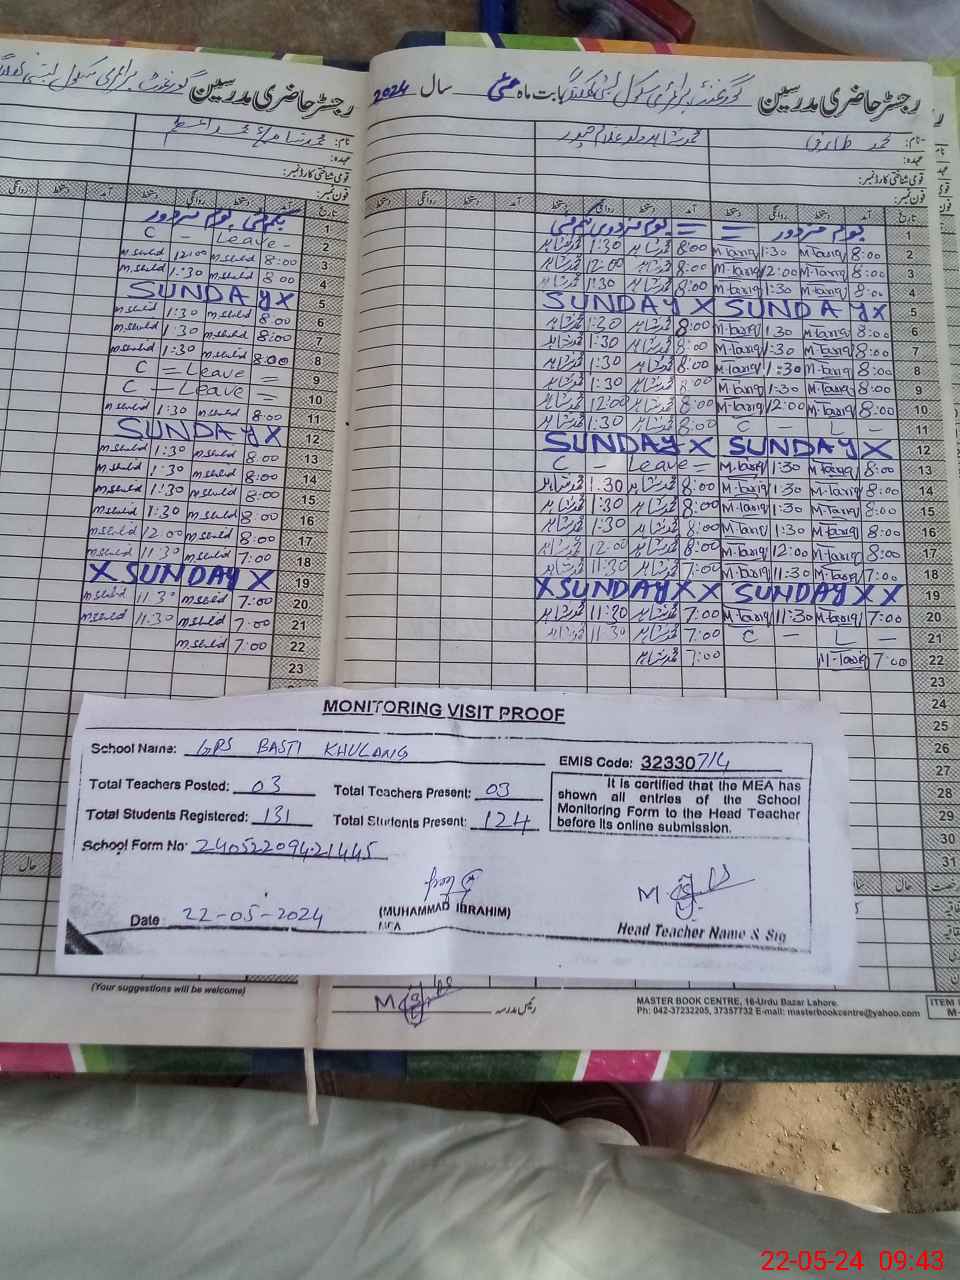 رجسٹر حاضری مدرسین گورنمنٹ پرائمری سکول بستی
رجسٹر حاضری مدرسین گورنمنٹ پرائمری سکول بستی بابت ماہ مئی سال 2024
نام:
عہدہ:
قومی شناختی کارڈ نمبر:
فون نمبر:
نام: محمد طارق
عہدہ:
قومی شناختی کارڈ نمبر:
فون نمبر:
تاریخ آمد دستخط روانگی دستخط
1 یکم مئی یوم مزدور
2 C - Leave -
3 8:00 msaeed 12:00 msaeed
4 8:00 msaeed 1:30 msaeed
5 SUNDAY X
6 8:00 msaeed 1:30 msaeed
7 8:00 msaeed 1:30 msaeed
8 8:00 msaeed 1:30 msaeed
9 C = Leave =
10 C - Leave =
11 8:00 msaeed 1:30 msaeed
12 SUNDAY X
13 8:00 msaeed 1:30 msaeed
14 8:00 msaeed 1:30 msaeed
15 8:00 msaeed 1:30 msaeed
16 8:00 msaeed 1:30 msaeed
17 8:00 msaeed 12:00 msaeed
18 7:00 msaeed 11:30 msaeed
19 X SUNDAY X
20 7:00 msaeed 11:30 msaeed
21 7:00 msaeed 11:30 msaeed
22 7:00 msaeed
23
تاریخ آمد دستخط روانگی دستخط آمد دستخط روانگی دستخط
1 یوم مزدور = = یوم مزدور یکم مئی
2 8:00 M-Tariq 1:30 M-Tariq 8:00 محمد شاہد 1:30 محمد شاہد
3 8:00 M-Tariq 12:00 M-Tariq 8:00 محمد شاہد 12:00 محمد شاہد
4 8:00 M-Tariq 1:30 M-Tariq 8:00 محمد شاہد 1:30 محمد شاہد
5 SUNDAY X SUNDAY X
6 8:00 M-Tariq 1:30 M-Tariq 8:00 محمد شاہد 1:30 محمد شاہد
7 8:00 M-Tariq 1:30 M-Tariq 8:00 محمد شاہد 1:30 محمد شاہد
8 8:00 M-Tariq 1:30 M-Tariq 8:00 محمد شاہد 1:30 محمد شاہد
9 8:00 M-Tariq 1:30 M-Tariq 8:00 محمد شاہد 1:30 محمد شاہد
10 8:00 M-Tariq 12:00 M-Tariq 8:00 محمد شاہد 12:00 محمد شاہد
11 C - L - 8:00 محمد شاہد 1:30 محمد شاہد
12 SUNDAY X SUNDAY X
13 8:00 M-Tariq 1:30 M-Tariq C - Leave =
14 8:00 M-Tariq 1:30 M-Tariq 8:00 محمد شاہد 1:30 محمد شاہد
15 8:00 M-Tariq 1:30 M-Tariq 8:00 محمد شاہد 1:30 محمد شاہد
16 8:00 M-Tariq 1:30 M-Tariq 8:00 محمد شاہد 1:30 محمد شاہد
17 8:00 M-Tariq 12:00 M-Tariq 8:00 محمد شاہد 12:00 محمد شاہد
18 7:00 M-Tariq 11:30 M-Tariq 7:00 محمد شاہد 11:30 محمد شاہد
19 X SUNDAY X X SUNDAY X X
20 7:00 M-Tariq 11:30 M-Tariq 7:00 محمد شاہد 11:30 محمد شاہد
21 C - L - 7:00 محمد شاہد 11:30 محمد شاہد
22 7:00 M-Tariq 7:00 محمد شاہد
23
24
25
26
27
28
29
30
31
MONITORING VISIT PROOF
School Name: GPS BASTI KHULANG
EMIS Code: 32330714
Total Teachers Posted: 03 Total Teachers Present: 03
Total Students Registered: 131 Total Students Present: 124
It is certified that the MEA has shown all entries of the School Monitoring Form to the Head Teacher before its online submission.
School Form No: 24052209421445
Date 22-05-2024
(MUHAMMAD IBRAHIM)
MEA
Head Teacher Name & Sig
(Your suggestions will be welcome)
رئیس مدرسہ
MASTER BOOK CENTRE, 16-Urdu Bazar Lahore.
Ph: 042-37232205, 37357732 E-mail: masterbookcentre@yahoo.com
ITEM
22-05-24 09:43